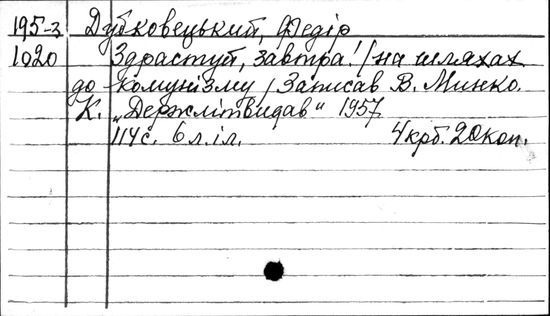 195-3 Дубковецький, Федір
1020 Здрастуй, завтра! /на шляхах
до комунізму/ Записав В. Минко.
К. „Держлітвидав“ 1957
114с. 6 л.іл. 4крб. 20коп.